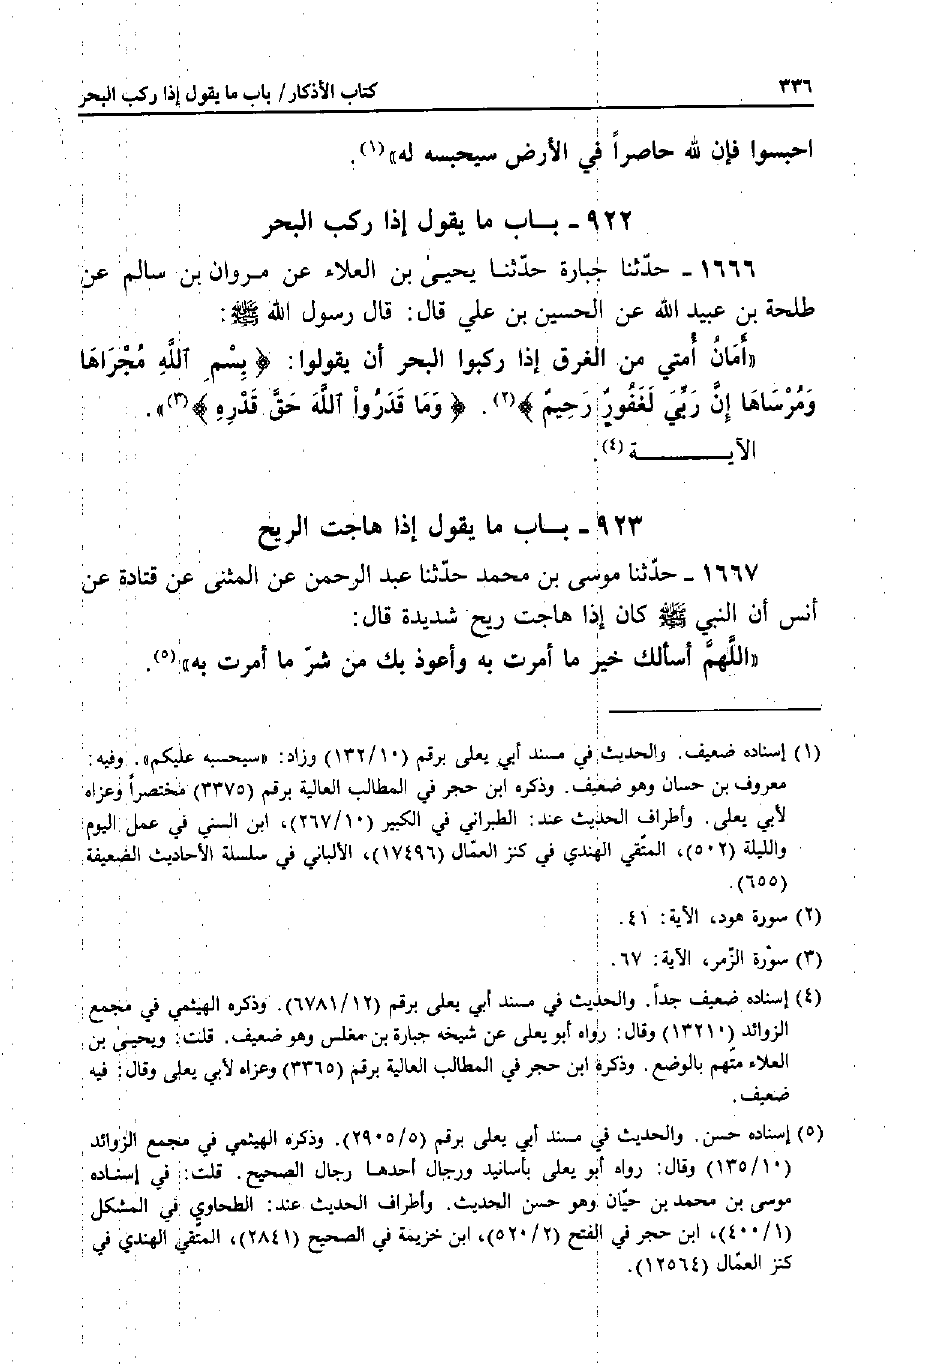 ٣٣٦
كتاب الأذكار/ باب ما يقول إذا ركب البحر
احبسوا فإن لله حاصراً في الأرض سيحبسه له»(١).
٩٢٢ ـ بـاب ما يقول إذا ركب البحر
١٦٦٦ ـ حدّثنا جبارة حدّثنا يحيىٰ بن العلاء عن مروان بن سالم عن
طلحة بن عبيد الله عن الحسين بن علي قال: قال رسول الله ﷺ:
«أَمَانُ أُمتي من الغرق إذا ركبوا البحر أن يقولوا: ﴿ بِسْمِ ٱللَّهِ مُجْرَاهَا
وَمُرْسَاهَا إِنَّ رَبِّيَ لَغَفُورٌ رَحِيمٌ ﴾(٢). ﴿ وَمَا قَدَرُواْ ٱللَّهَ حَقَّ قَدْرِهِ ﴾(٣)».
الآيـــــــة(٤).
٩٢٣ ـ بـاب ما يقول إذا هاجت الريح
١٦٦٧ ـ حدّثنا موسى بن محمد حدّثنا عبد الرحمن عن المثنى عن قتادة عن
أنس أن النبي ﷺ كان إذا هاجت ريح شديدة قال:
«اللَّهمَّ أسألك خير ما أمرت به وأعوذ بك من شرّ ما أمرت به»(٥).
(١) إسناده ضعيف. والحديث في مسند أبي يعلى برقم (١٣٢/١٠) وزاد: «سيحسبه عليكم». وفيه:
معروف بن حسان وهو ضعيف. وذكره ابن حجر في المطالب العالية برقم (٣٣٧٥) مختصراً وعزاه
لأبي يعلى. وأطراف الحديث عند: الطبراني في الكبير (٢٦٧/١٠)، ابن السني في عمل اليوم
والليلة (٥٠٢)، المتّقي الهندي في كنز العمّال (١٧٤٩٦)، الألباني في سلسلة الأحاديث الضعيفة
(٦٥٥).
(٢) سورة هود، الآية: ٤١.
(٣) سورة الزّمر، الآية: ٦٧.
(٤) إسناده ضعيف جداً. والحديث في مسند أبي يعلى برقم (٦٧٨١/١٢). وذكره الهيثمي في مجمع
الزوائد (١٣٢١٠) وقال: رواه أبو يعلى عن شيخه جبارة بن مغلس وهو ضعيف. قلت: ويحيىٰ بن
العلاء متّهم بالوضع. وذكره ابن حجر في المطالب العالية برقم (٣٣٦٥) وعزاه لأبي يعلى وقال: فيه
ضعيف.
(٥) إسناده حسن. والحديث في مسند أبي يعلى برقم (٢٩٠٥/٥). وذكره الهيثمي في مجمع الزوائد
(١٣٥/١٠) وقال: رواه أبو يعلى بأسانيد ورجال أحدها رجال الصحيح. قلت: في إسناده
موسى بن محمد بن حيّان وهو حسن الحديث. وأطراف الحديث عند: الطحاوي في المشكل
(٤٠٠/١)، ابن حجر في الفتح (٥٢٠/٢)، ابن خزيمة في الصحيح (٢٨٤١)، المتّقي الهندي في
كنز العمّال (١٢٥٦٤).